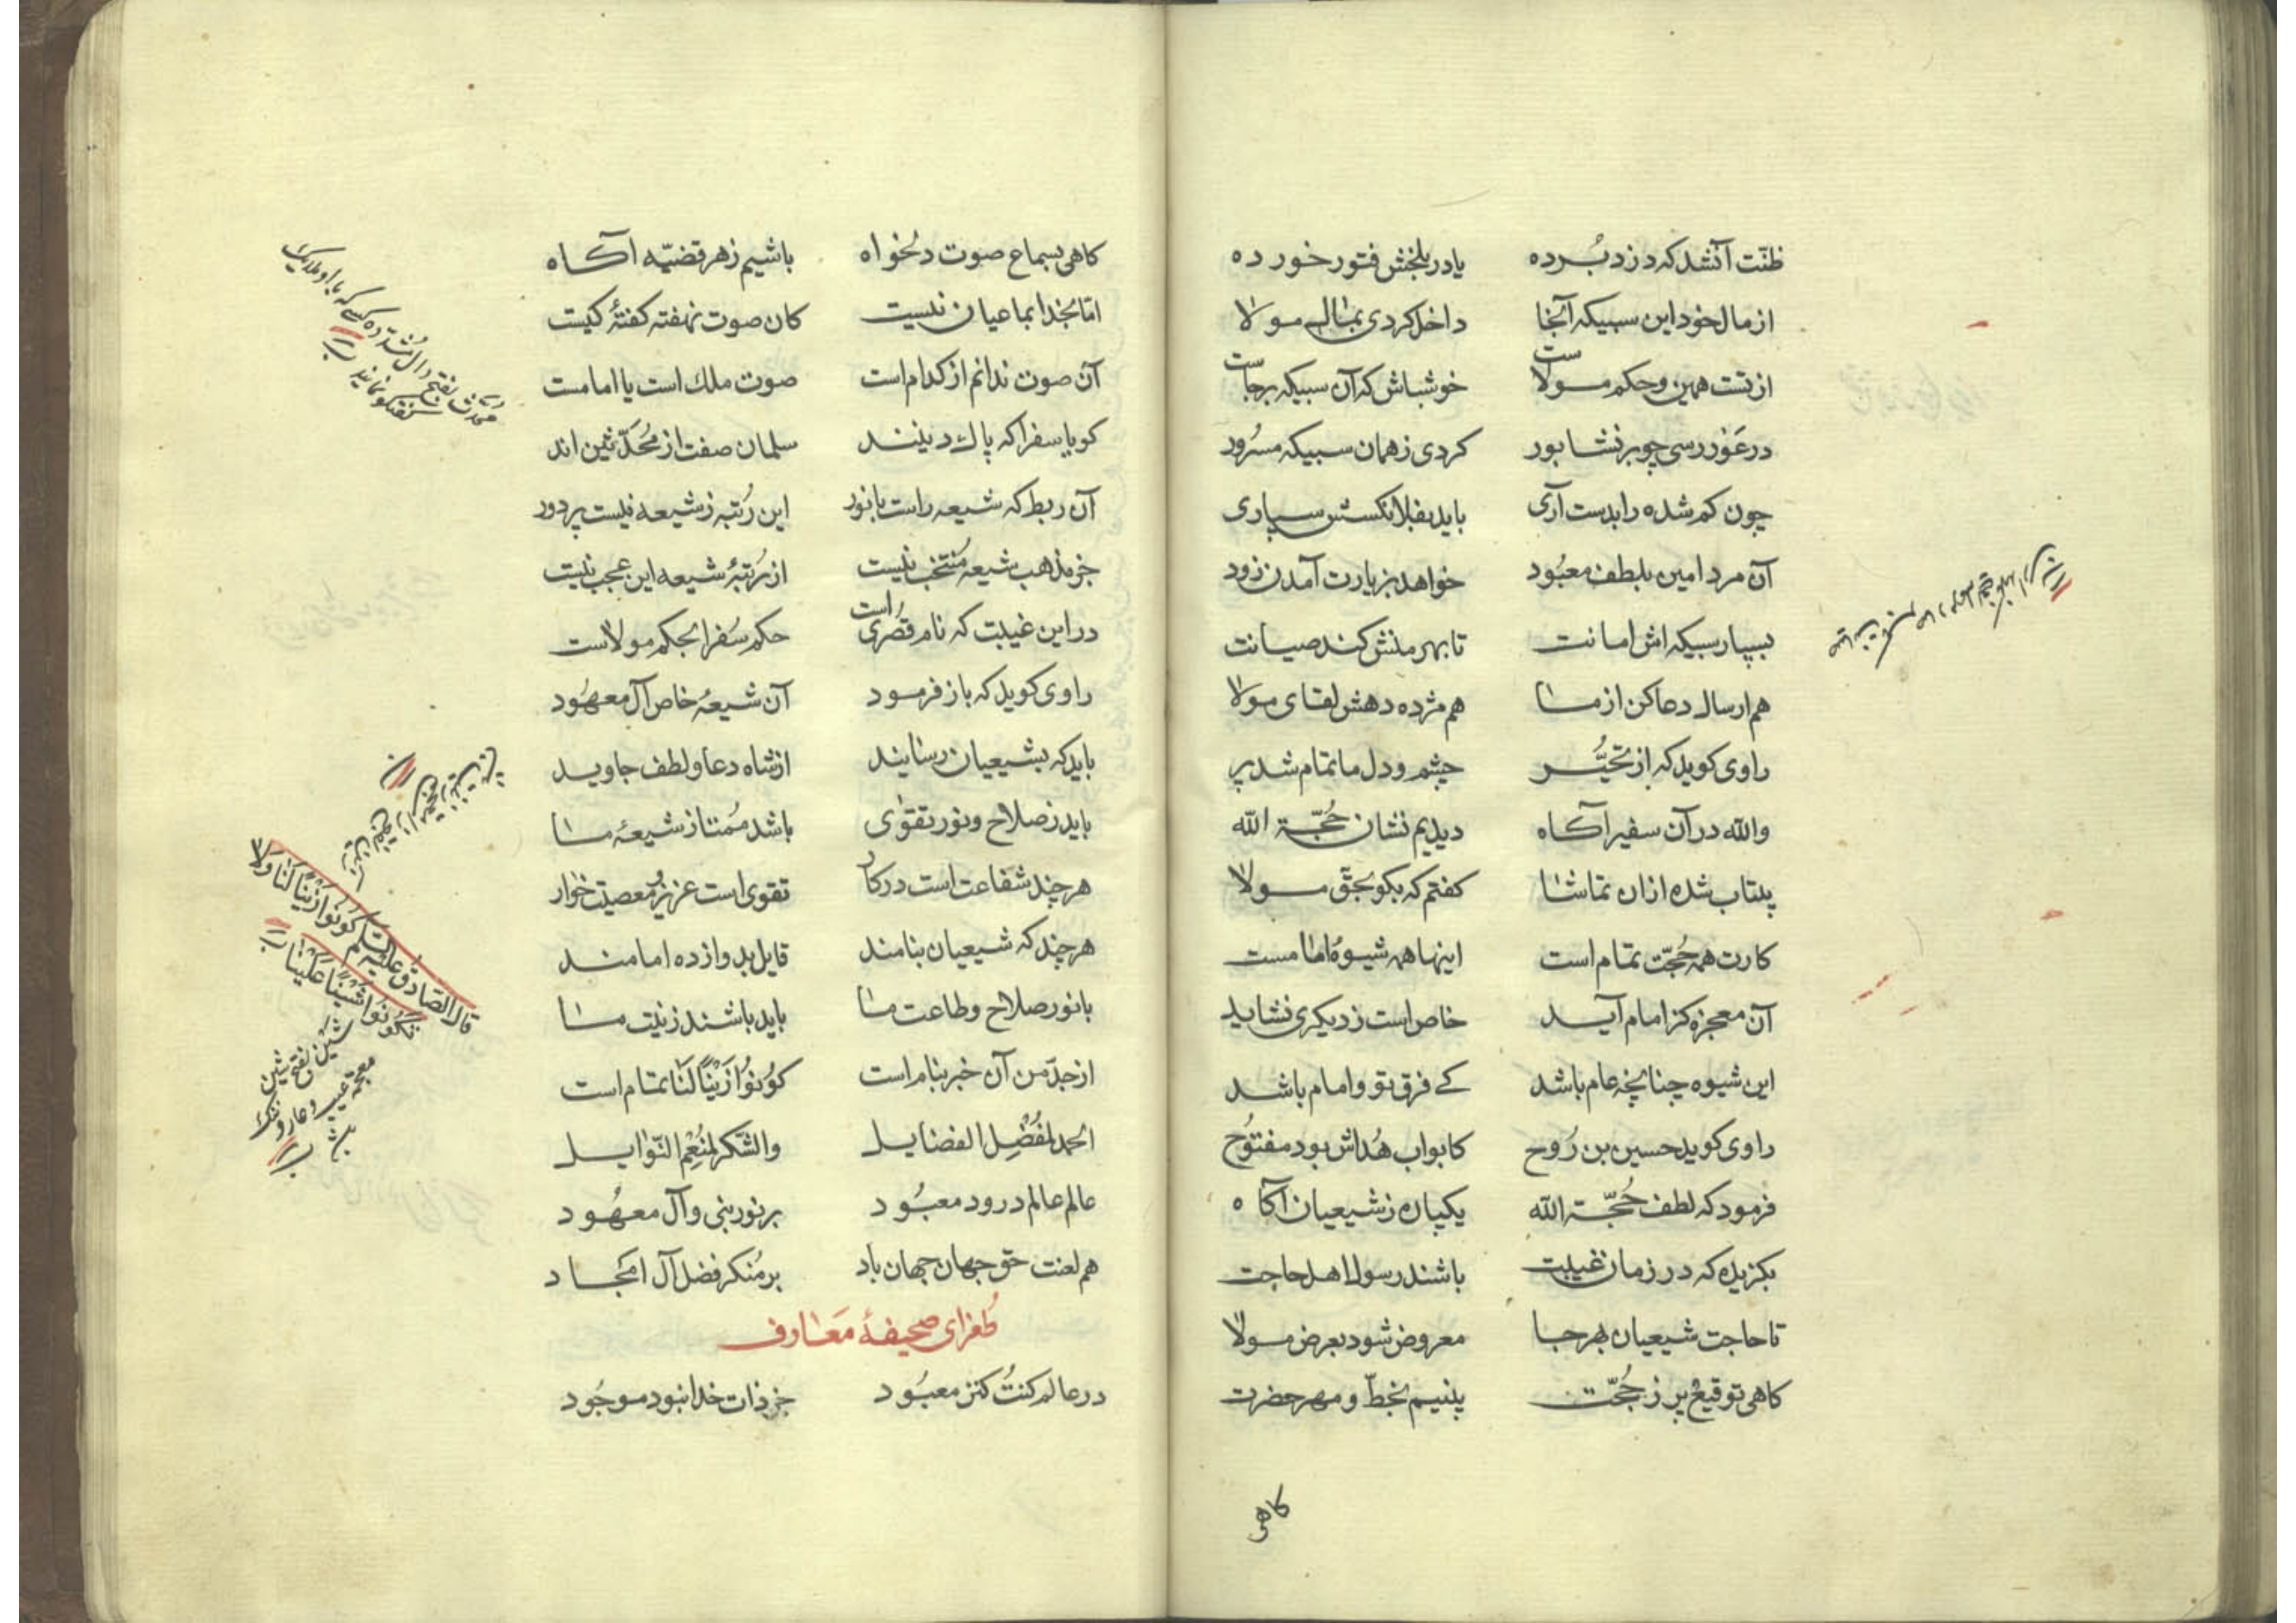 ظنّت آنشد که دزد بُرده یا در بلخش فتور خورده
از مال خود این سبیکه آنجا داخل کردی بمال مولا
از تست همین و حکم مولاست خوشباش که آن سبیکه برجاست
در غور رسی چو بر نشابور کردی ز همان سبیکه مسرُور
چون کم شده را بدست آری باید بفلانکسش سپاری
آن مرد امین بلطف معبُود خواهد بزیارت آمدن زود
بسپار سبیکه اش امانت تا بهر منش کند صیانت
هم ارسال دعا کن از ما هم مژده دهش لقای مولا
راوی کوید که از تحیُّر چشم و دل ما تمام شد پر
والله در آن سفیر آکاه دیدیم نشان حُجّة الله
بیتاب شده ازان تماشا کفتم که بکو بحقّ مولا
کارت همه حُجّت تمام است اینها همه شیوهٔ امامست
آن معجزه کز امام آید خاص است ز دیکری نشاید
این شیوه چنانچه عام باشد کے فرق تو و امام باشد
راوی کوید حسین بن رَوح کابواب هُداش بود مفتوُح
فرمود که لطف حُجّة الله یکپاره ز شیعیان آکاه
بکزیده که در زمان غیبت باشند رسول اهل حاجت
تا حاجت شیعیان بهر جا معروض شود بعرض مولا
کاهی توقیع پر ز حُجّت بینیم بخطّ و مهر حضرت
کاهی
کاهی بسماع صوت دلخواه باشیم ز هر قضیّه آکاه
امّا بخدا بما عیان نیست کان صوت نهفته کفتهٔ کیست
آن صوت ندانم از کدام است صوت ملك است یا امامست
کویا سفرا که پاك دینند سلمان صفت از مُحَدّثین اند
آن ربط که شیعه راست با نور این رُتبه ز شیعه نیست پر دور
جز مذهب شیعه مُنتخب نیست از رُتبهٔ شیعه این عجب نیست
در این غیبت که نام قصُری است حکم سُفرا بحکم مولاست
راوی کوید که باز فرمود آن شیعهٔ خاص آل معهُود
باید که بشیعیان رسانید از شاه دعا و لطف جاوید
باید ز صلاح و نور تقوٰی باشد مُمتاز شیعهٔ ما
هر چند شفاعت است در کار تقوی است عزیز و معصیت خوار
هر چند که شیعیان بنامند قایل بدوازده امامند
با نور صلاح و طاعت ما باید باشند زینت ما
از جدّ من آن خبر بنام است کوُنوُا زَیْنًا لَنَا تمام است
الحمد لمُفْضِل الفضایل والشّکر لمُنْعِم النّوایل
عالم عالم درود معبُود بر نور نبی و آل معهُود
هم لعنت حق جهان جهان باد بر مُنکر فضل آل امجاد
طُغرای صحیفهٔ مَعارف
در عالم کنتُ کنز معبُود جز ذات خدا نبود موجُود
محدّث بفتح دال مُشدّده کسی که با او ملایک
گفتگو نمایند
قال الصّادق علیه السّلم کُونُوا زَیْنًا لَنَا وَلَا
تَکُونُوا شَیْنًا عَلَیْنا
شین بفتح شین
معجمه عیب و عار و ننک